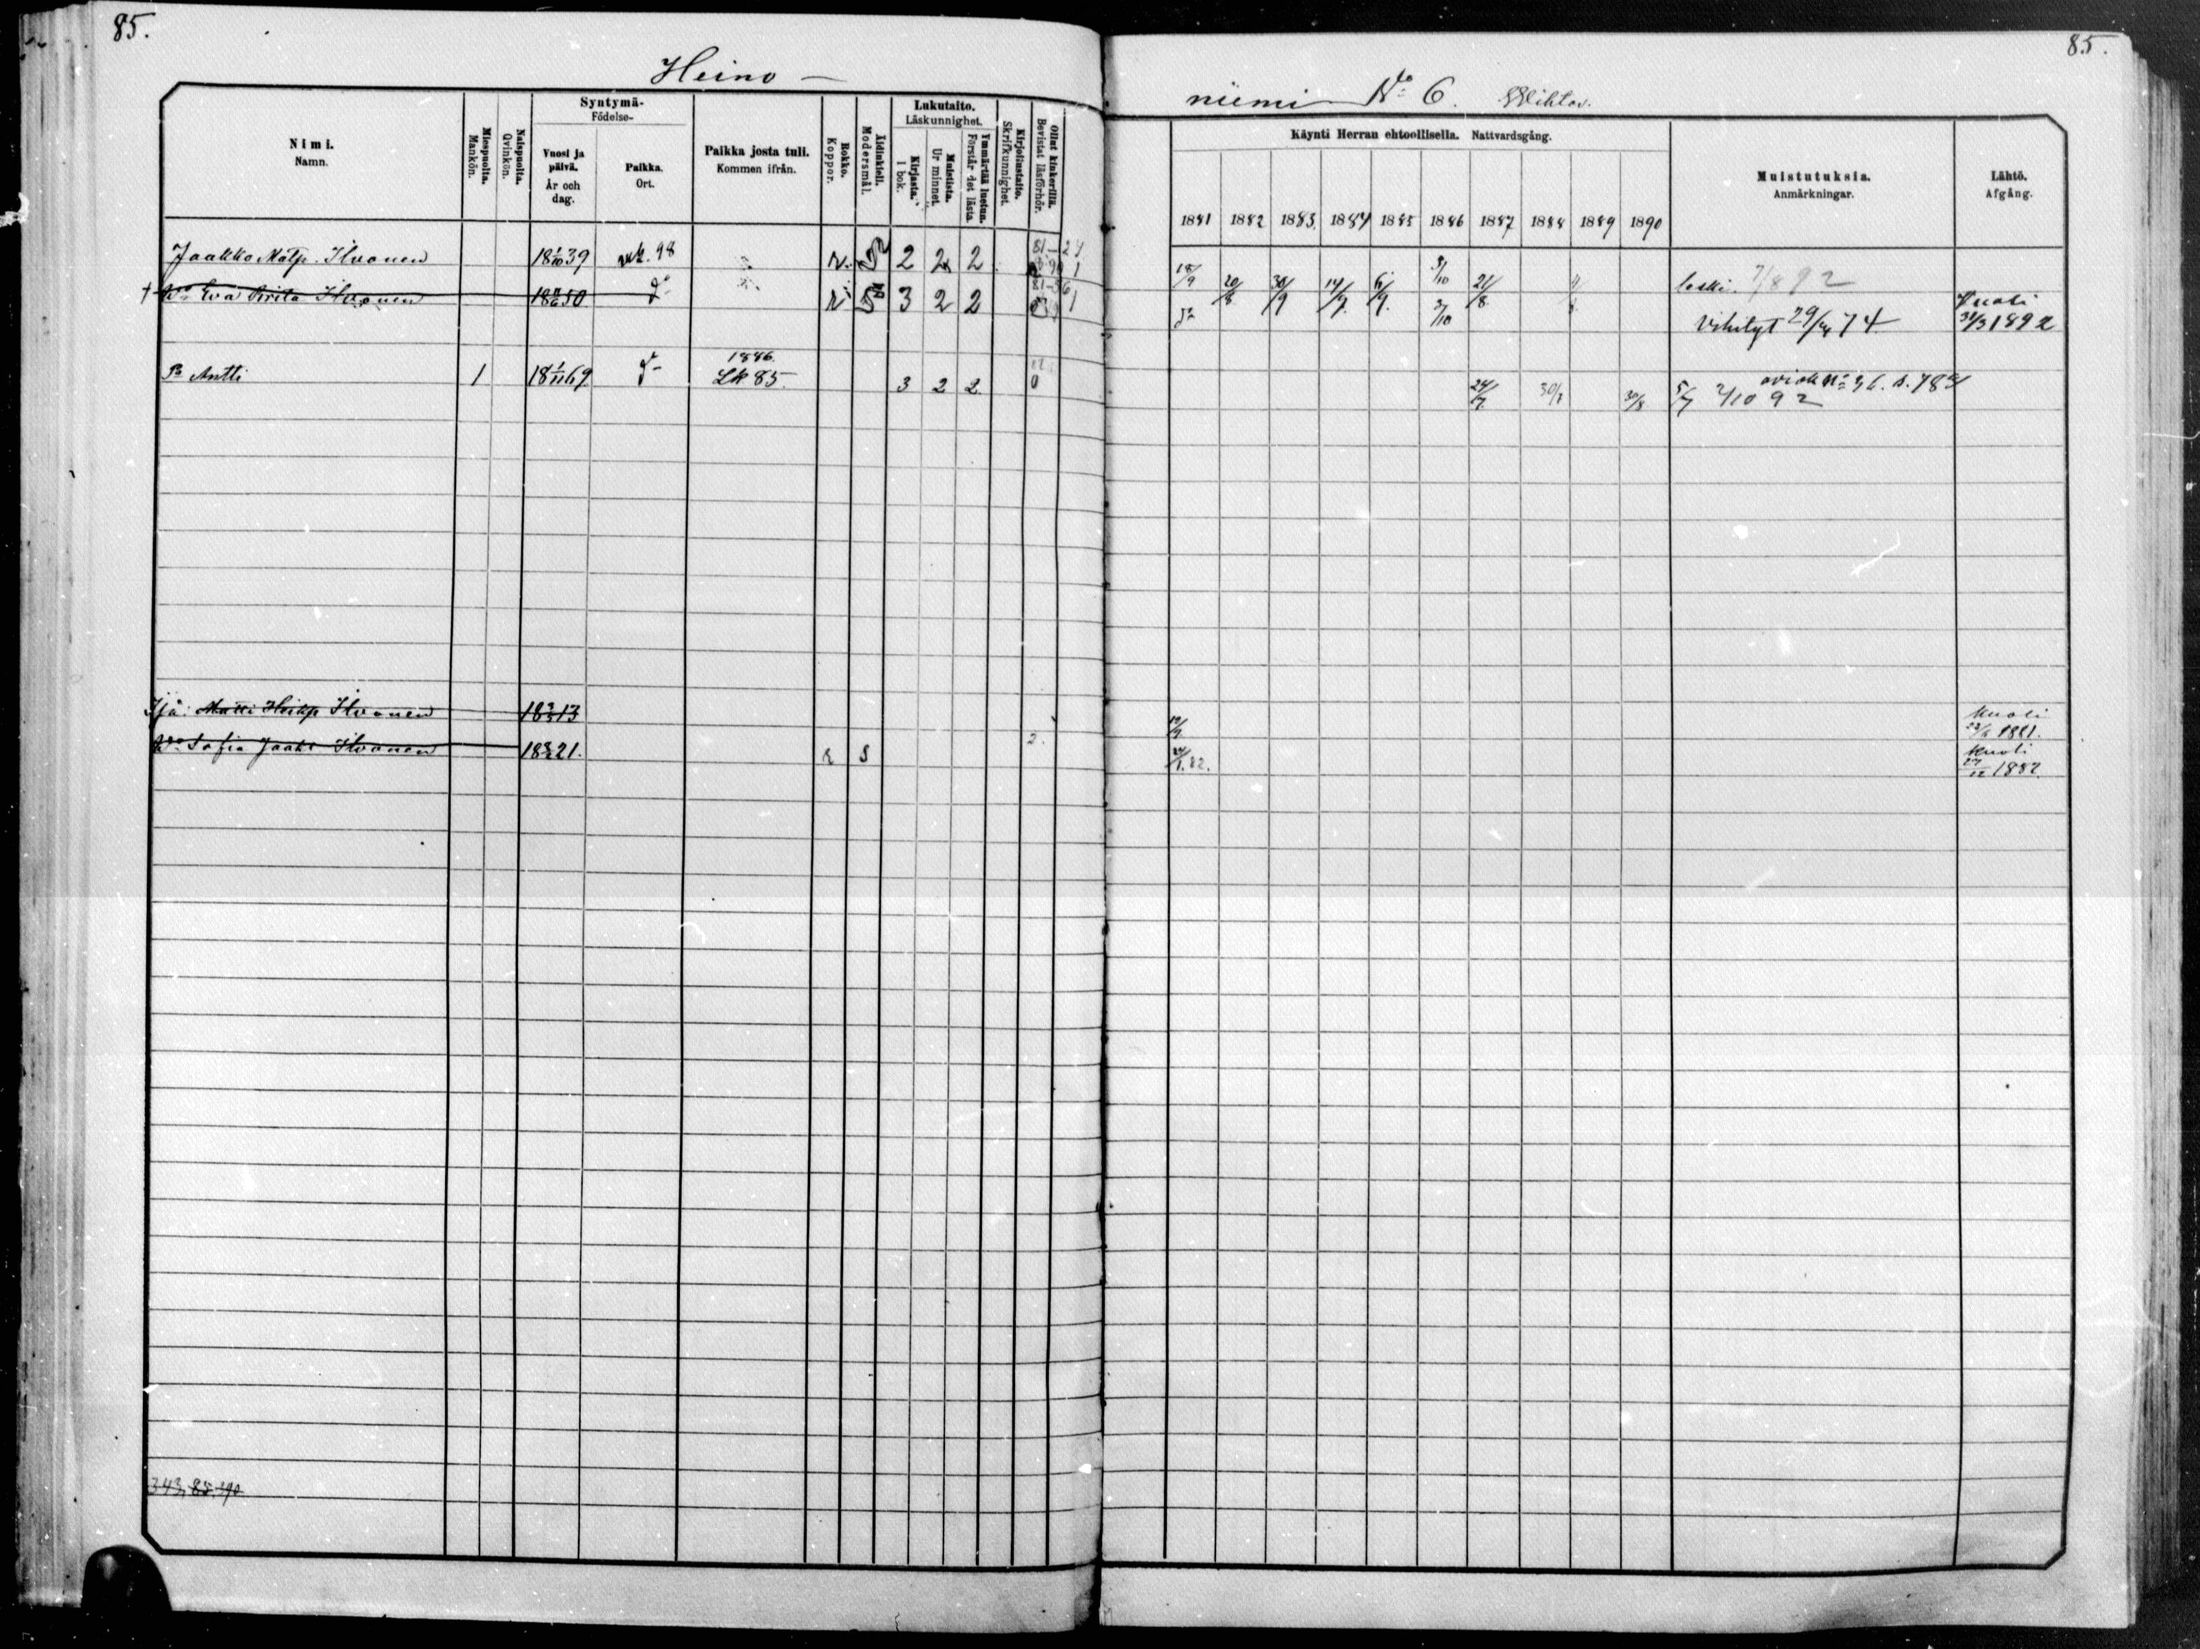 85.
85.
Heino-
niemi No 6.
Nimi.
Namn.
Miespuolta.
Mankön.
Naispuolta.
Qvinkön.
Syntymä-
Födelse-
Vuosi ja
päivä.
År och
dag.
Paikka.
Ort.
Paikka josta tuli.
Kommen ifrån.
Rokko.
Koppor.
Äidinkieli.
Modersmål.
Lukutaito.
Läskunnighet.
Kirjasta.
I bok.
Muistista.
Ur minnet.
Ymmärtää luetun.
Förstår det lästa.
Kirjoitustaito.
Skrifkunnighet.
Ollut kinkerillä.
Bevistat läsförhör.
Käynti Herran ehtoollisella. Nattvardsgång.
1881 1882 1883 1884 1885 1886 1887 1888 1889 1890
Muistutuksia.
Anmärkningar.
Lähtö.
Afgång.
Jaakko Matp. Ilvonen 18 1/10 39 98 r. S 2 2 2 18/9 20/8 30/9 14/9 6/9 3/10 21/8 leski. 7/8 92
† Wo Eva Brita Ilvonen 50 do r S 3 2 2 do 3/10 vihityt 74 Kuoli
31/3 1892
Po Antti 1 18 1/11 69 do 1886.
Lk 85. 3 2 2 0 24/7 30/7 30/8 5/7 2/10 92
Isä: Matti Heikp Ilvonen 13 Kuoli
1881.
Wo Sofia Jaak Ilvonen 21. r S 2. 82. Kuoli
27/12 1882.
343, 85, 390